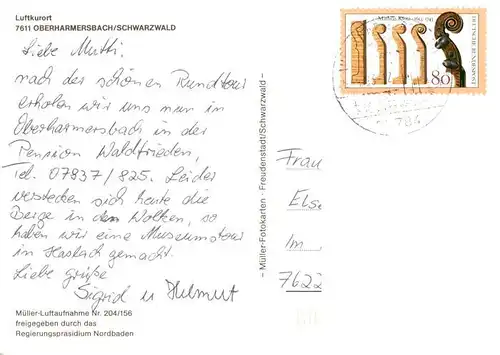 Luftkurort
7611 OBERHARMERSBACH/SCHWARZWALD
Liebe Mutti,
nach der schönen Rundtour
erholen wir uns nun in
Oberharmersbach in der
Pension Waldfrieden,
Tel. 07837/825. Leider
verstecken sich heute die
Berge in den Wolken, so
haben wir eine Museumstour
in Haslach gemacht.
Liebe Grüße
Sigrid u Helmut
Müller-Luftaufnahme Nr. 204/156
freigegeben durch das
Regierungspräsidium Nordbaden
— Müller-Fotokarten · Freudenstadt/Schwarzwald —
80
Frau
Else
Im
7622